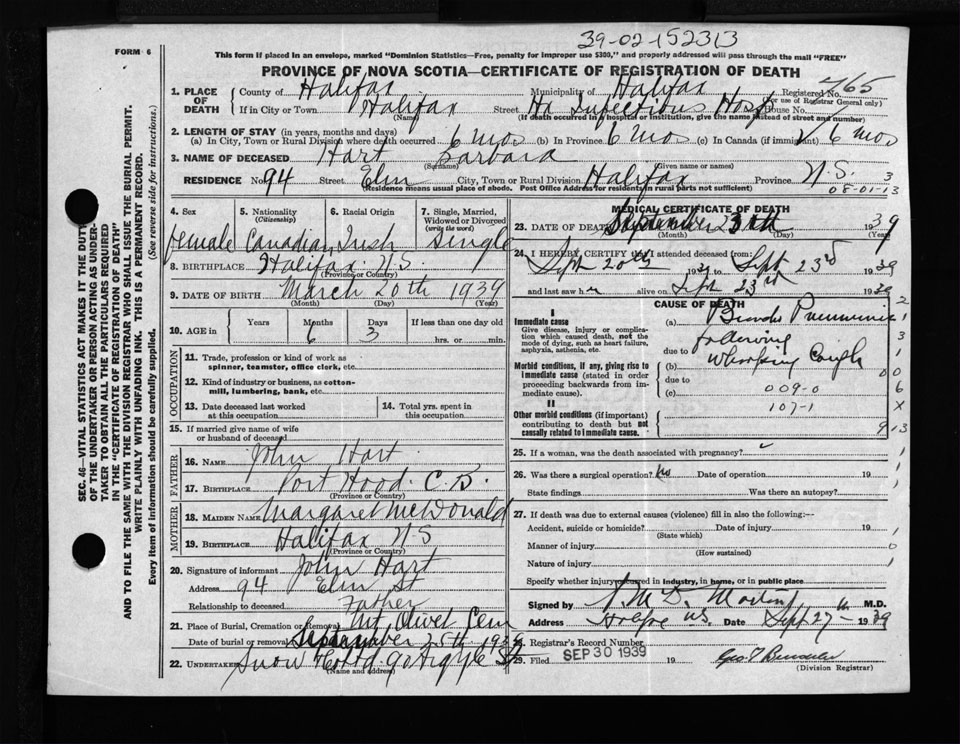 39-02-152313
FORM 6
This form if placed in an envelope, marked "Dominion Statistics—Free, penalty for improper use $300," and properly addressed will pass through the mail "FREE"
PROVINCE OF NOVA SCOTIA—CERTIFICATE OF REGISTRATION OF DEATH
1. PLACE OF DEATH County of Halifax Municipality of Halifax Registered No. 765
(For use of Registrar General only)
If in City or Town Halifax Street Hx Infectious Hosp House No.
(Name) (If death occurred in a hospital or institution, give the name instead of street and number)
2. LENGTH OF STAY (in years, months and days)
(a) In City, Town or Rural Division where death occurred 6 mos (b) In Province 6 mos (c) In Canada (if immigrant) 6 mos
3. NAME OF DECEASED Hart Barbara
(Surname) (Given name or names)
RESIDENCE No 94 Street Elm City, Town or Rural Division Halifax Province N.S. 3
(Residence means usual place of abode. Post Office Address for residents in rural parts not sufficient) 08-01-13
4. Sex 5. Nationality (Citizenship) 6. Racial Origin 7. Single, Married, Widowed or Divorced (write the word)
female Canadian Irish Single
8. BIRTHPLACE Halifax N.S.
(Province or Country)
9. DATE OF BIRTH March 20th 1939
(Month) (Day) (Year)
10. AGE in Years Months Days If less than one day old
6 3 hrs. or min.
OCCUPATION
11. Trade, profession or kind of work as spinner, teamster, office clerk, etc.
12. Kind of industry or business, as cotton-mill, lumbering, bank, etc.
13. Date deceased last worked at this occupation 14. Total yrs. spent in this occupation
15. If married give name of wife or husband of deceased
FATHER
16. Name John Hart
17. Birthplace Port Hood C.B.
(Province or Country)
MOTHER
18. Maiden Name Margaret McDonald
19. Birthplace Halifax N S
(Province or Country)
20. Signature of informant John Hart
Address 94 Elm St
Relationship to deceased Father
21. Place of Burial, Cremation or Removal Mt Olivet Cem
Date of burial or removal September 25th 1939
22. Undertaker Snow & Co Ltd. 90 Argyle St
(Name and address)
MEDICAL CERTIFICATE OF DEATH
23. DATE OF DEATH September 1939
(Month) (Day) (Year)
24. I HEREBY CERTIFY that I attended deceased from:
Sept 20th 1939 to Sept 23rd 1939
and last saw her alive on Sept 23rd 1939
CAUSE OF DEATH
I
Immediate cause
Give disease, injury or complication which caused death, not the mode of dying, such as heart failure, asphyxia, asthenia, etc.
(a) Broncho Pneumonia
due to following
Morbid conditions, if any, giving rise to immediate cause (stated in order proceeding backwards from immediate cause).
(b) Whooping Cough
due to
(c) 009-0
107-1
II
Other morbid conditions (if important) contributing to death but not causally related to immediate cause.
25. If a woman, was the death associated with pregnancy?
26. Was there a surgical operation? No Date of operation 19
State findings Was there an autopsy?
27. If death was due to external causes (violence) fill in also the following:—
Accident, suicide or homicide? Date of injury 19
(State which)
Manner of injury
(How sustained)
Nature of injury
Specify whether injury occurred in industry, in home, or in public place
Signed by M.D.
Address Halifax N.S. Date Sept 27th 1939
28. Registrar's Record Number
29. Filed SEP 30 1939 19
(Division Registrar)
SEC. 46—VITAL STATISTICS ACT MAKES IT THE DUTY
OF THE UNDERTAKER OR PERSON ACTING AS UNDERTAKER TO OBTAIN ALL THE PARTICULARS REQUIRED
IN THE "CERTIFICATE OF REGISTRATION OF DEATH"
AND TO FILE THE SAME WITH THE DIVISION REGISTRAR WHO SHALL ISSUE THE BURIAL PERMIT.
WRITE PLAINLY WITH UNFADING INK. THIS IS A PERMANENT RECORD.
Every item of information should be carefully supplied. (See reverse side for instructions.)